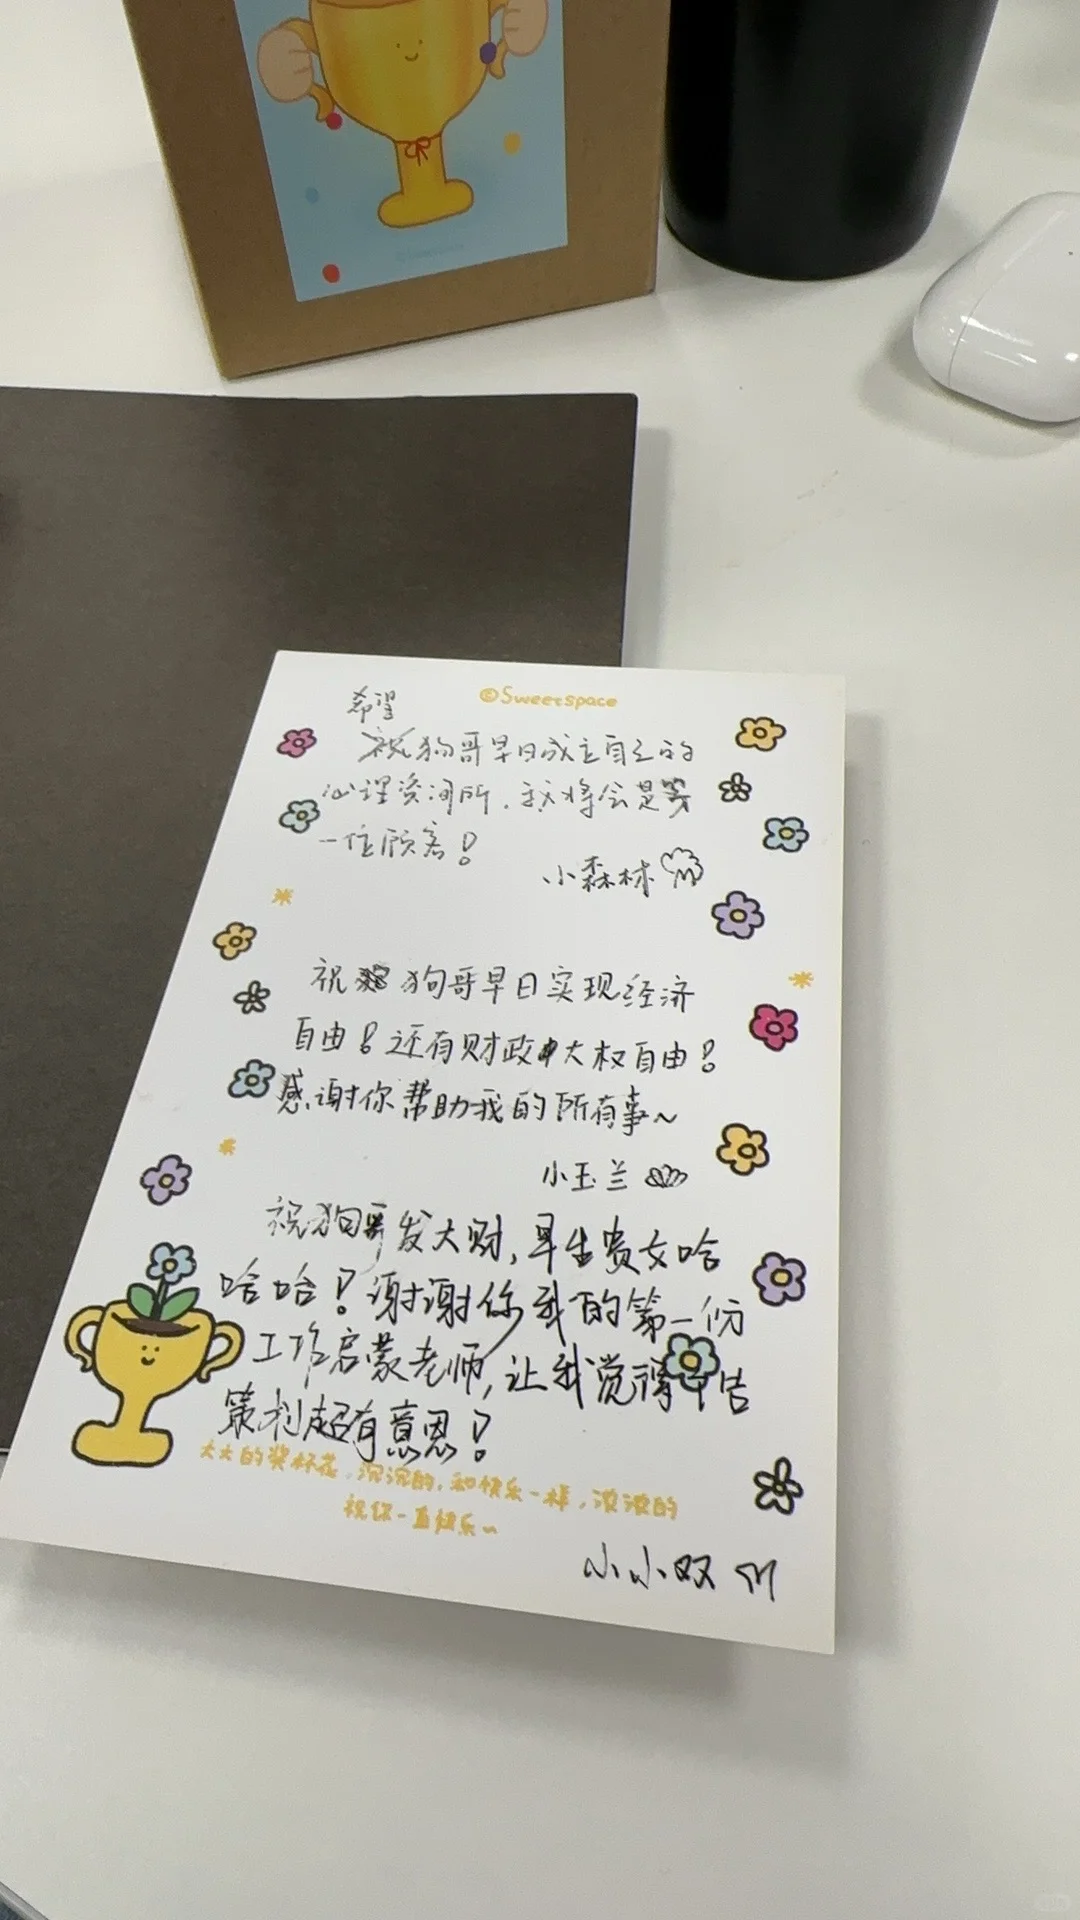 ©Sweetspace
希望
狗哥早日成立自己的
心理咨询所，我将会是第
一位顾客！
小森林
祝狗哥早日实现经济
自由！还有财政大权自由！
感谢你帮助我的所有事～
小玉兰
祝狗哥发大财，早生贵女哈
哈哈！谢谢你我的第一份
工作启蒙老师，让我觉得广告
策划超有意思！
大大的奖杯花，沉沉的，和快乐一样，浓浓的
祝你一直快乐～
小小双